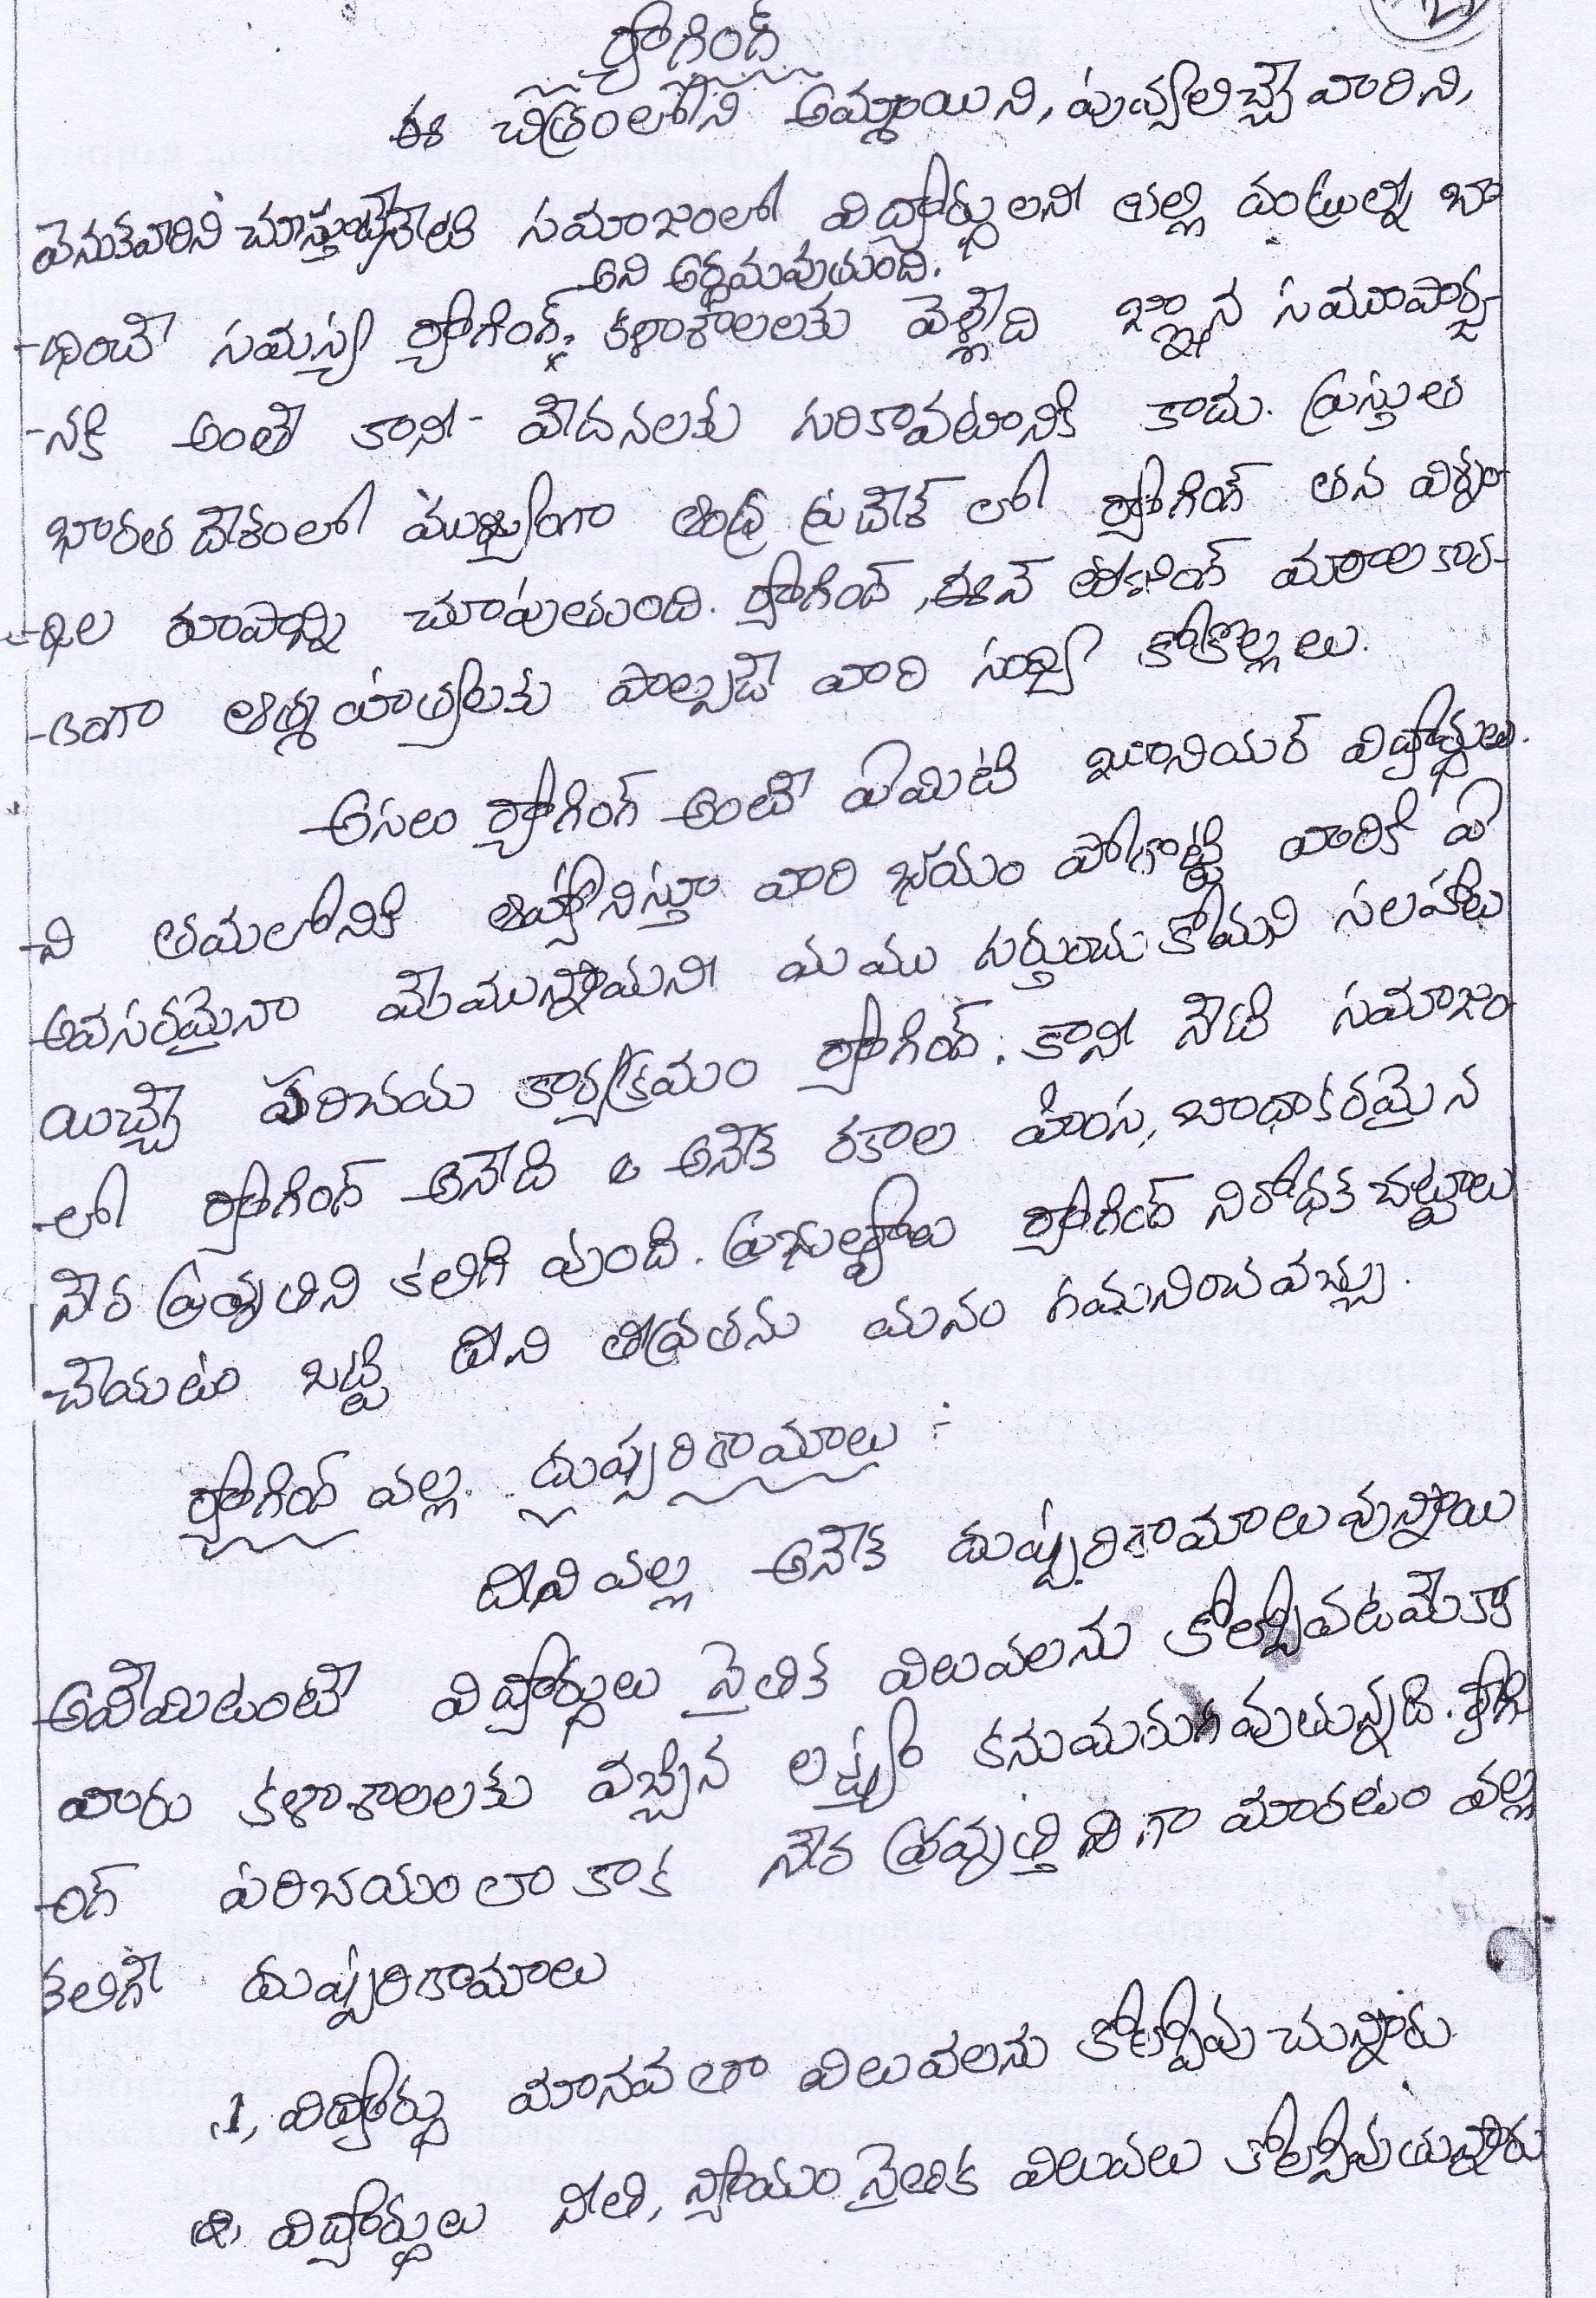 ర్యాగింగ్
ఈ చిత్రంలోని అమ్మాయిని, పువ్వులిచ్చే వారిని,
వెనుకవారిని చూస్తుంటే నేటి సమాజంలో విద్యార్థులనీ తల్లి దండ్రుల్ని బా
అని అర్థమవుతుంది.
-ధించే సమస్య ర్యాగింగ్. కళాశాలలకు వెళ్లేది జ్ఞాన సముపార్జ
-నకి అంతే కానీ - వేదనలకు గురికావటానికి కాదు. ప్రస్తుత
భారత దేశంలో ముఖ్యంగా ఆంధ్ర ప్రదేశ్ లో ర్యాగింగ్ తన విశృం
-ఖల రూపాన్ని చూపుతుంది. ర్యాగింగ్, ఈవ్ టీజింగ్ మూలాల కార
-ణంగా ఆత్మ హత్యలకు పాల్పడే వారి సంఖ్య కోకొల్లలు.
అసలు ర్యాగింగ్ అంటే ఏమిటి జూనియర్ విద్యార్థులు.
-ని తమలోనికి ఆహ్వానిస్తూ వారి భయం పోగొట్టి వారికి ఏ
అవసరమైనా మేమున్నామనీ మము గుర్తుంచు కోమని సలహాలు
యిచ్చే పరిచయ కార్యక్రమం ర్యాగింగ్. కానీ నేటి సమాజం
-లో ర్యాగింగ్ అనేది అనేక రకాల హింస, బాధాకరమైన
నేర ప్రవృతిని కలిగి వుంది. ప్రభుత్వాలు ర్యాగింగ్ నిరోధక చట్టాలు
చేయటం బట్టి దీని తీవ్రతను మనం గమనించవచ్చు.
ర్యాగింగ్ వల్ల దుష్పరిణామాలు :
దీని వల్ల అనేక దుష్పరిణామాలు వున్నాయి
అవేమిటంటే విద్యార్థులు నైతిక విలువలను కోల్పోవటమేకాక
వారు కళాశాలలకు వచ్చిన లక్ష్యం కనుమరుగ వుతున్నది. ర్యాగి
-ంగ్ పరిచయంలా కాక నేర ప్రవృత్తి నిగా మారటం వల్ల
కలిగే దుష్పరిణామాలు
1, విద్యార్థు మానవతా విలువలను కోల్పోవు చున్నారు
2, విద్యార్థులు నీతి, న్యాయం నైతిక విలువలు కోల్పోవుతున్నారు